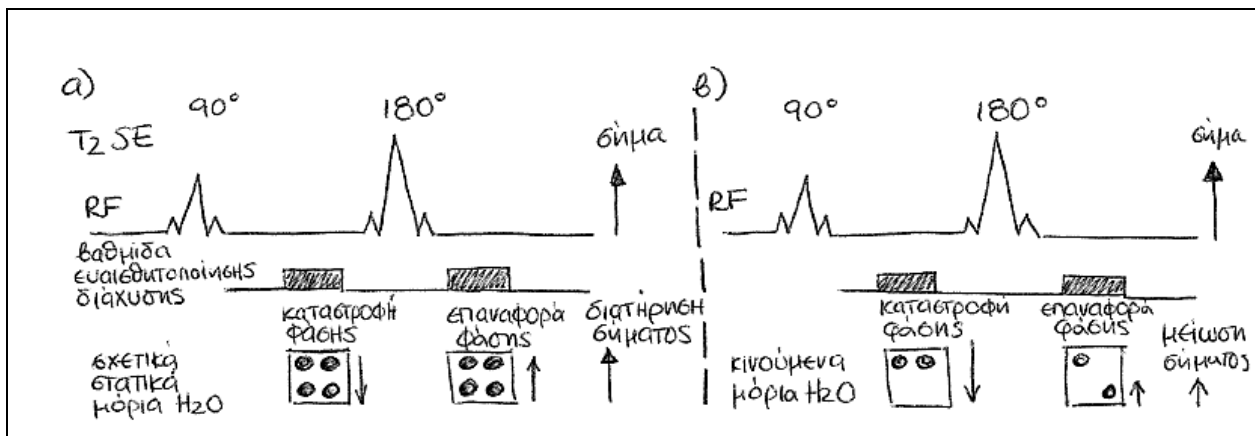 α)
90°
180°
T2 SE
σήμα
RF
βαθμίδα
ευαισθητοποίησης
διάχυσης
καταστροφή
φάσης
επαναφορά
φάσης
διατήρηση
σήματος
σχετικά
στατικά
μόρια H2O
β)
90°
180°
σήμα
RF
καταστροφή
φάσης
επαναφορά
φάσης
μείωση
σήματος
κινούμενα
μόρια H2O